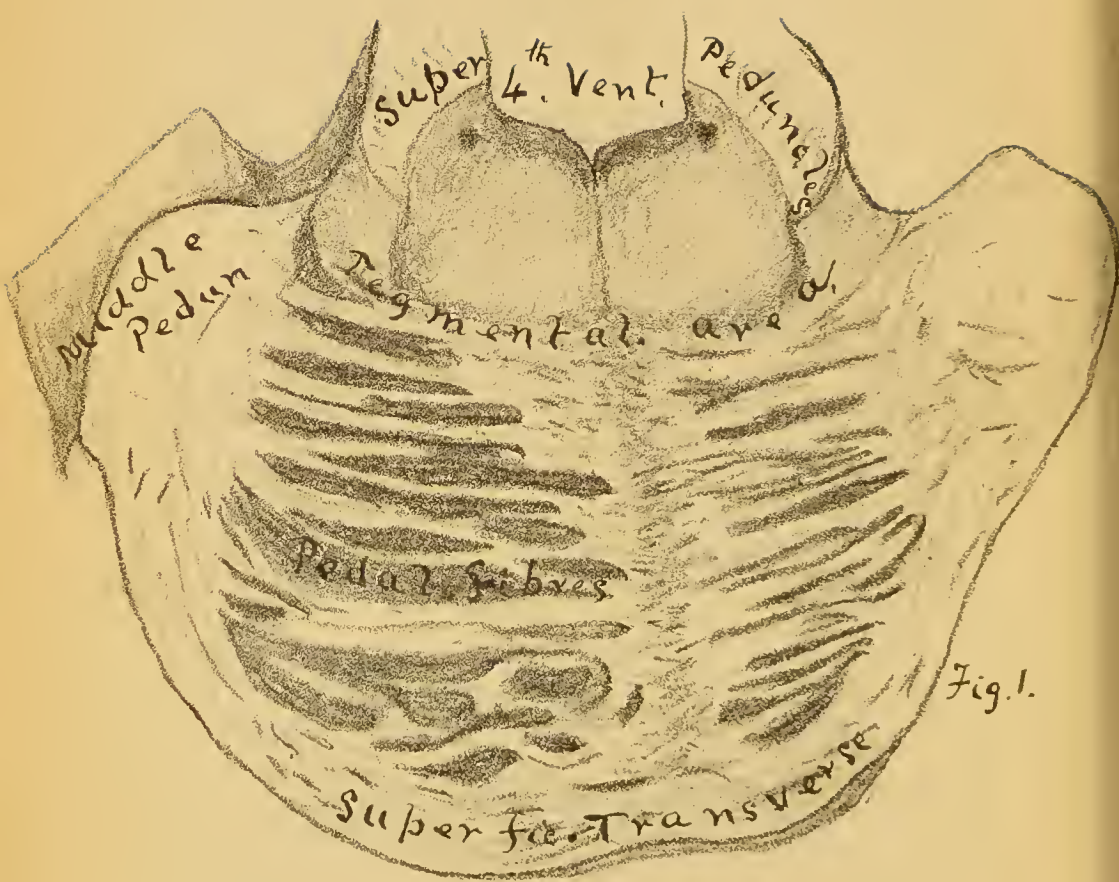 Super
4th. Vent.
Peduncles
Middle
Pedun
Tegmental. area.
Pedal. fibres
Fig. 1.
Superfic. Transverse